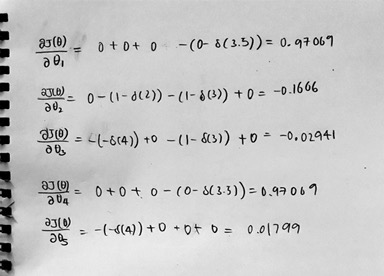 ∂J(θ)/∂θ₁ = 0+0+ 0 -(0- δ(3.5)) = 0.97069
∂J(θ)/∂θ₂ = 0-(1-δ(2))-(1-δ(3))+0 = -0.1666
∂J(θ)/∂θ₃ = -(-δ(4))+0 -(1-δ(3))+0 = -0.02941
∂J(θ)/∂θ₄ = 0+0+ 0 -(0-δ(3.5)) = 0.97069
∂J(θ)/∂θ₅ = -(-δ(4))+0 +0+ 0 = 0.01799